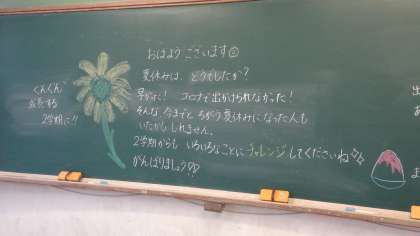 おはようございます☺
夏休みは、どうでしたか？
コロナで出かけられなかった！
そんな今までとちがう夏休みになった人も
いたかもしれません。
2学期からも いろいろなことにチャレンジしてくださいね♪
がんばりましょう♡♡
ぐんぐん
成長する
2学期に!!
出
あ
ま